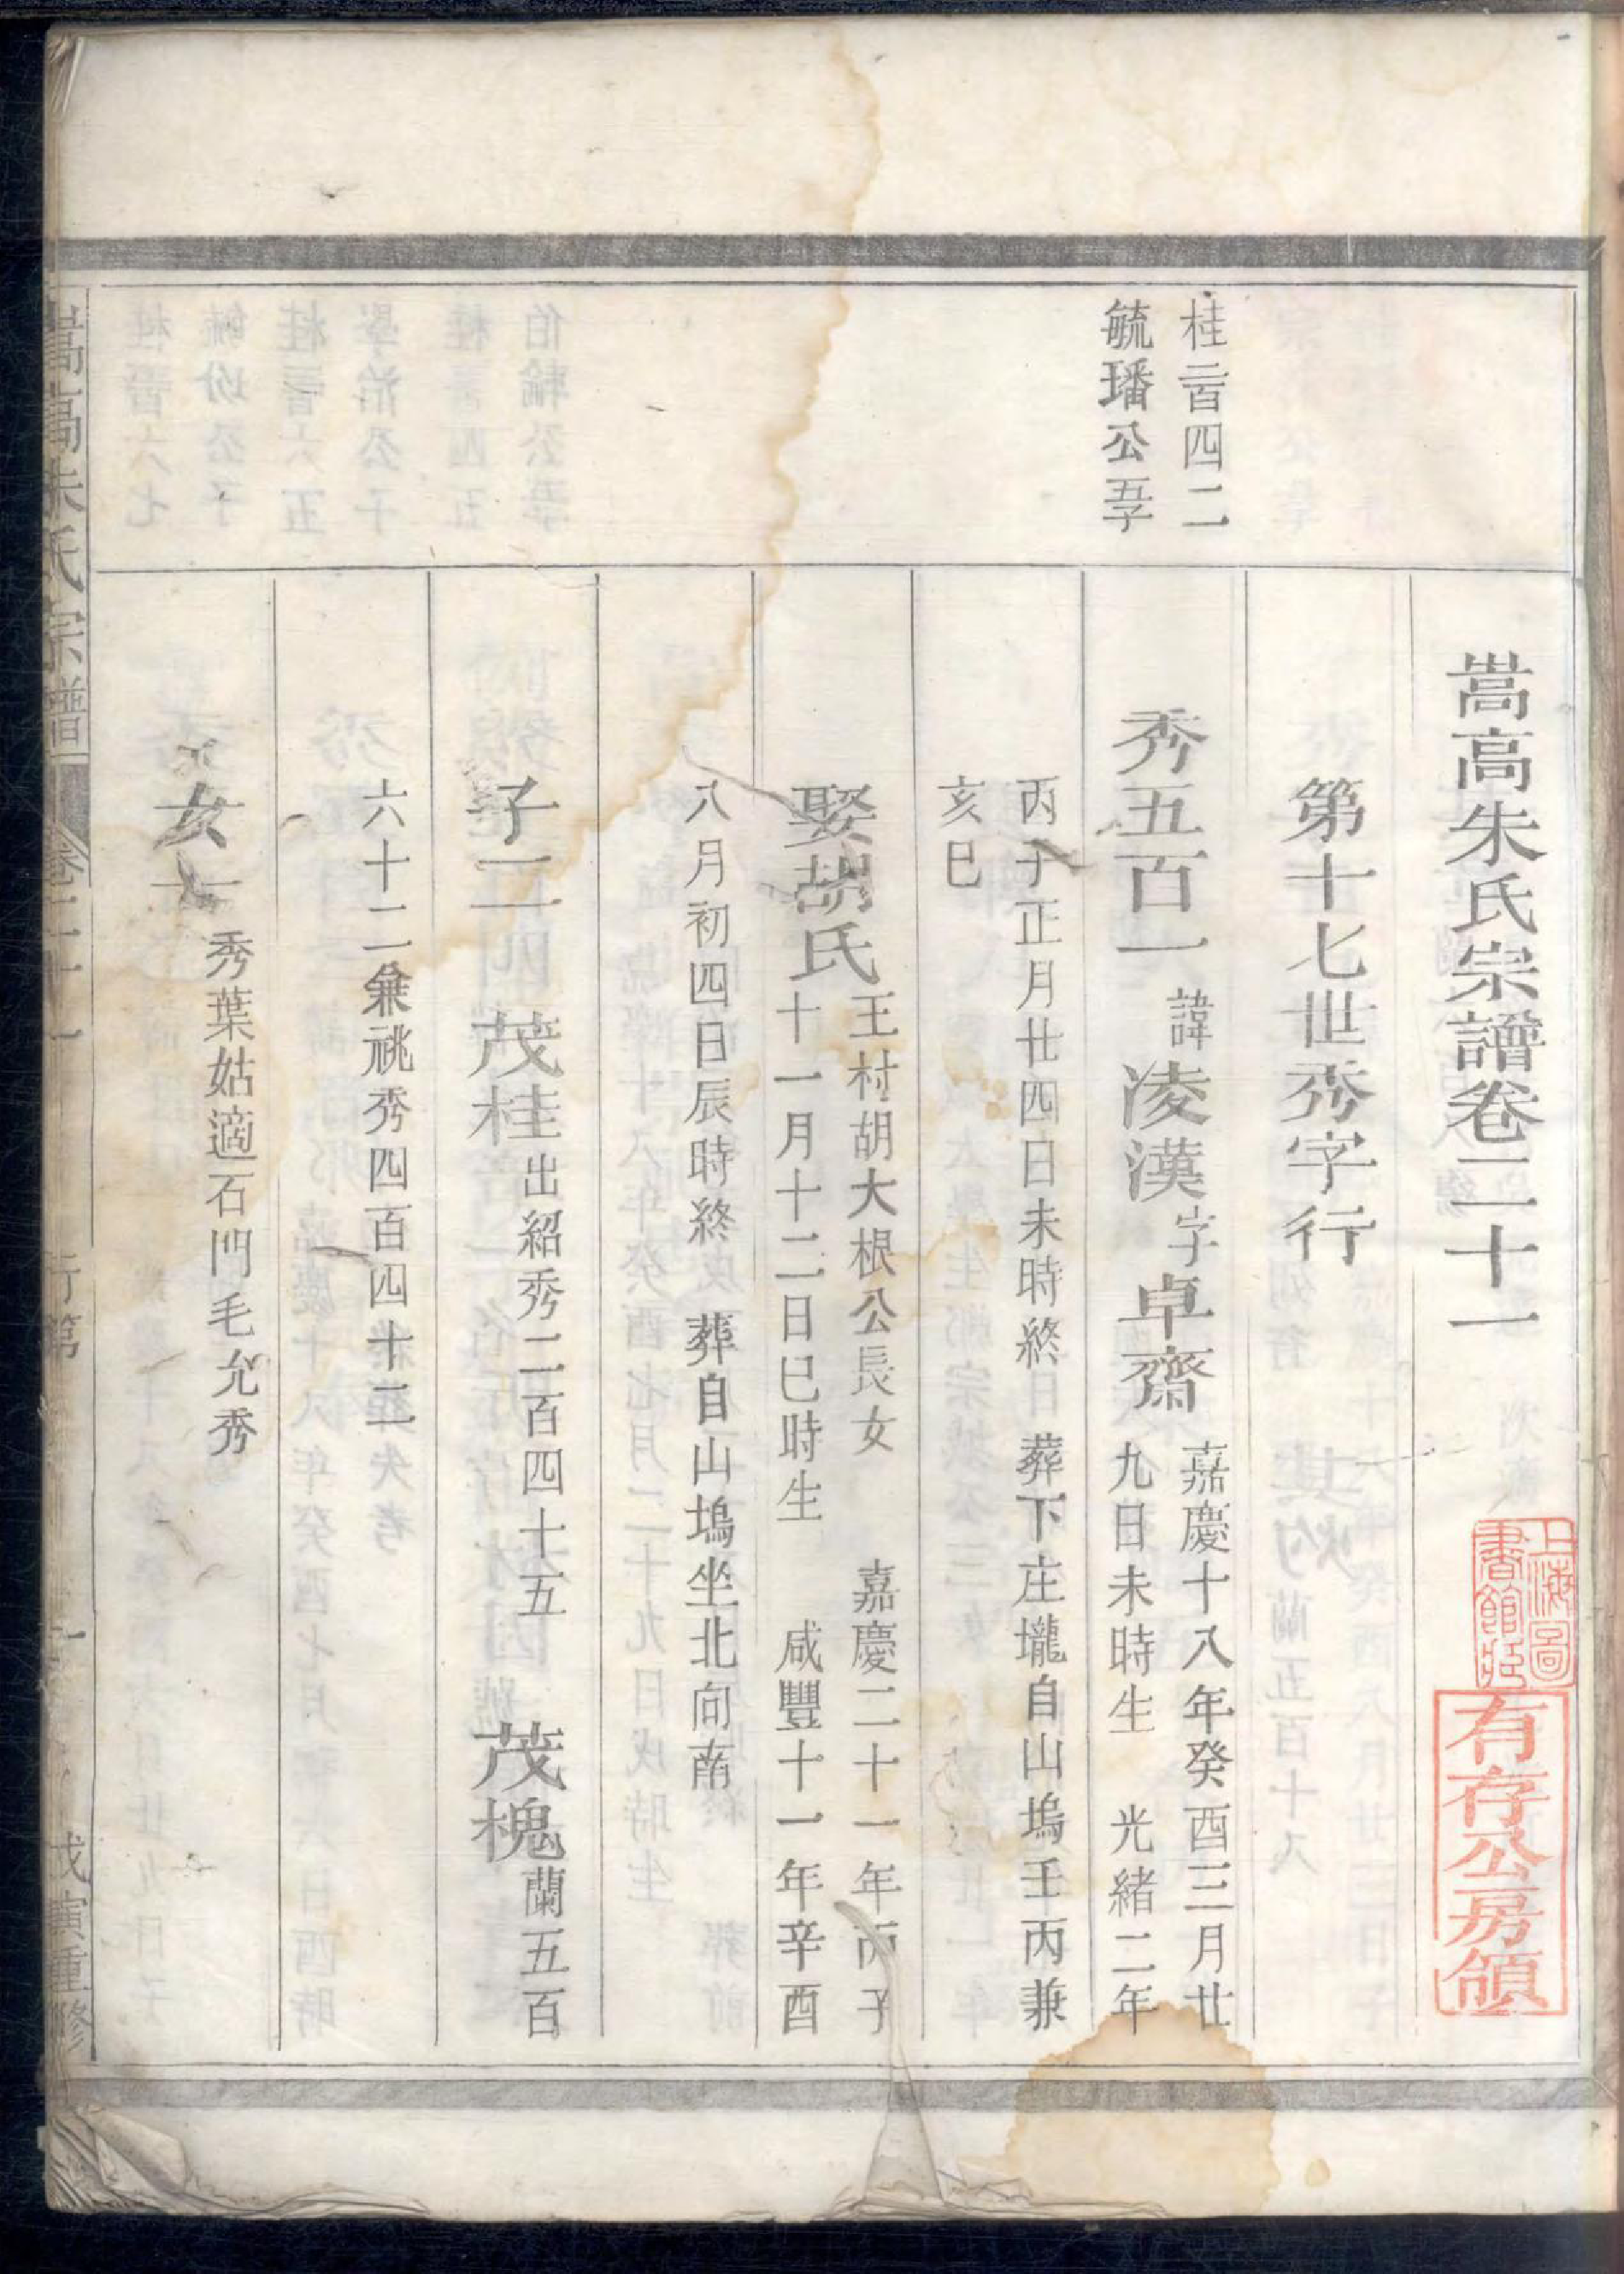 嵩高朱氏宗譜卷二十一
上海圖
書館藏
有存公房領
第十七世秀字行
桂二百四二
毓璠公五子
秀五百一 諱凌漢字卓齋 嘉慶十八年癸酉三月廿
九日未時生 光緒二年
丙子正月廿四日未時終 葬下庄壠自山塢壬丙兼
亥巳
娶胡氏 王村胡大根公長女 嘉慶二十一年丙子
十一月十二日巳時生 咸豐十一年辛酉
八月初四日辰時終 葬自山塢坐北向南
子二 茂桂出紹秀二百四十五 茂槐蘭五百
六十二兼祧秀四百四十二
女一 秀葉姑適石門毛允秀
嵩高朱氏宗譜 卷二十一 行第 一 戊寅重修